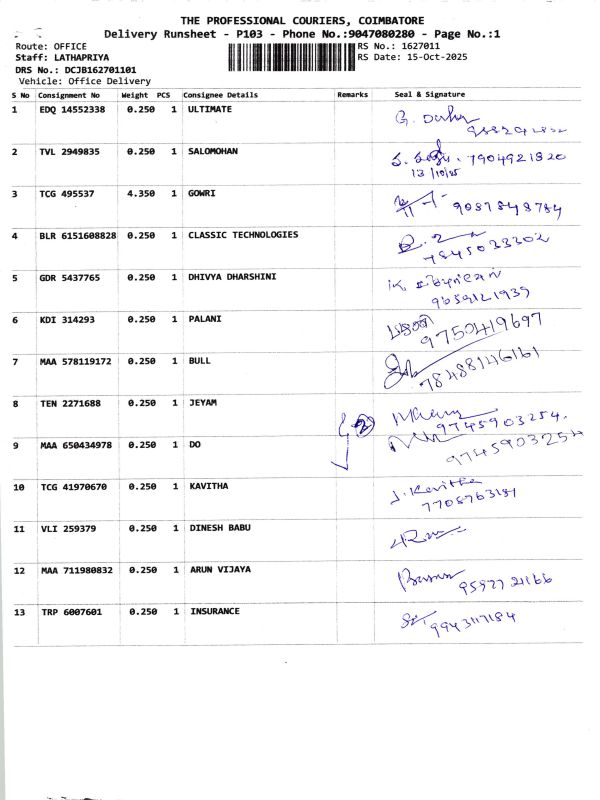 THE PROFESSIONAL COURIERS, COIMBATORE
Delivery Runsheet - P103 - Phone No.:9047080280 - Page No.:1
Route: OFFICE RS No.: 1627011
Staff: LATHAPRIYA RS Date: 15-Oct-2025
DRS No.: DCJB162701101
Vehicle: Office Delivery
S No Consignment No Weight PCS Consignee Details Remarks Seal & Signature
1 EDQ 14552338 0.250 1 ULTIMATE
2 TVL 2949835 0.250 1 SALOMOHAN 7904921820
13/10/25
3 TCG 495537 4.350 1 GOWRI 9087848784
4 BLR 6151608828 0.250 1 CLASSIC TECHNOLOGIES
7845033302
5 GDR 5437765 0.250 1 DHIVYA DHARSHINI
9659121939
6 KDI 314293 0.250 1 PALANI
9750419697
7 MAA 578119172 0.250 1 BULL
7848146161
8 TEN 2271688 0.250 1 JEYAM
2 9745903254.
9 MAA 650434978 0.250 1 DO
9745903254
10 TCG 41970670 0.250 1 KAVITHA J. Kavitha
7708763181
11 VLI 259379 0.250 1 DINESH BABU
12 MAA 711980832 0.250 1 ARUN VIJAYA
9597721166
13 TRP 6007601 0.250 1 INSURANCE
9943117184